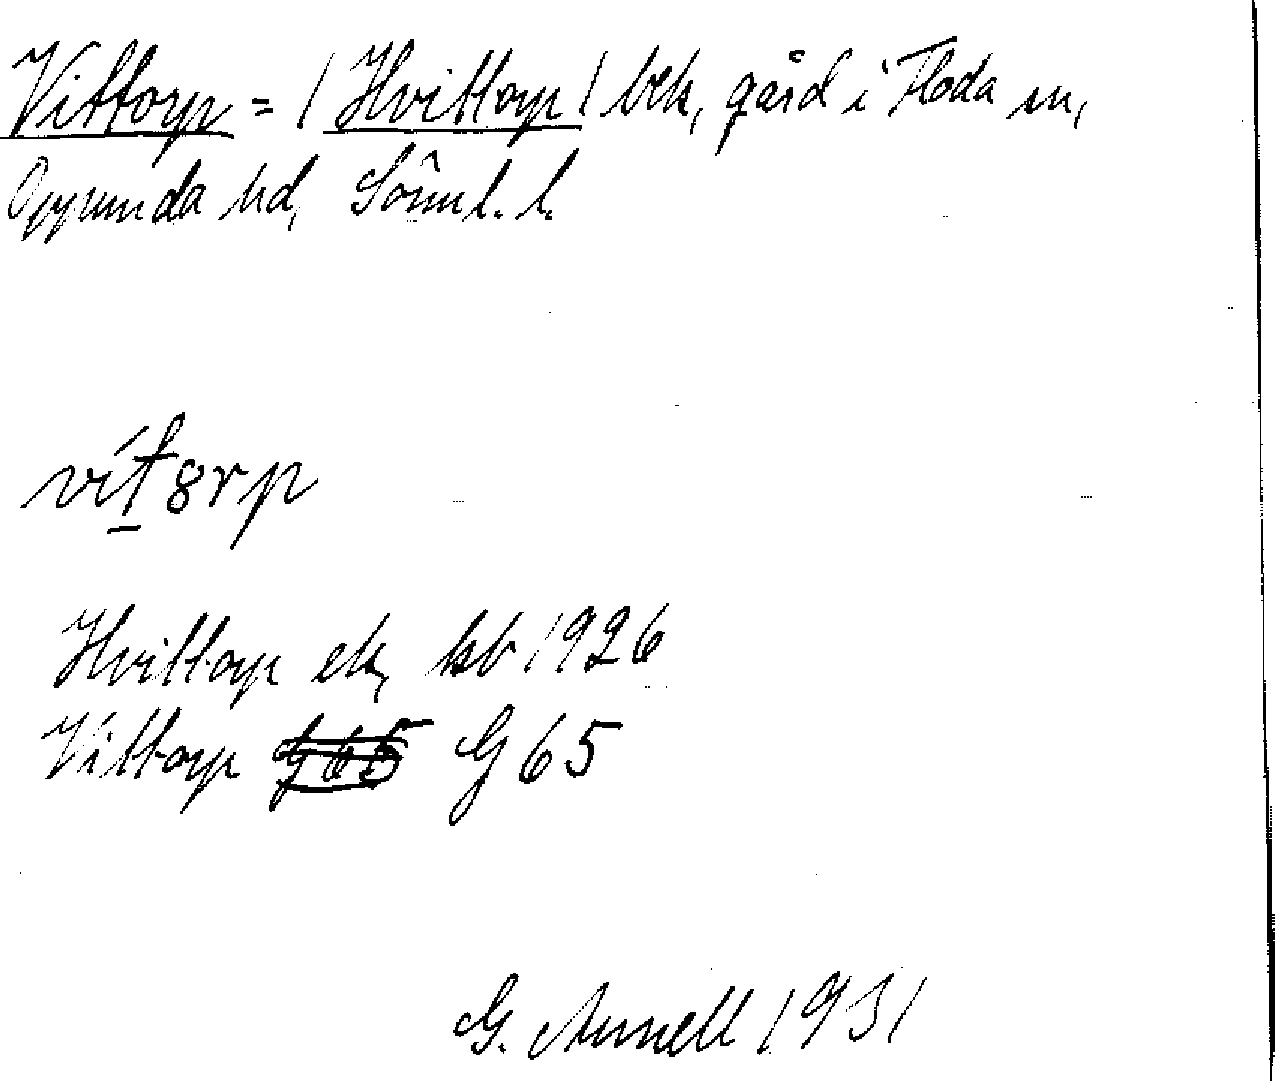 Vittorp = / Hvittorp / bek, gård i Floda sn,
Oppunda hd, Södml. l.
vít8rp
Hvittorp ek, kb 1926
Vittorp G 65 G 65
G. Annell 1931